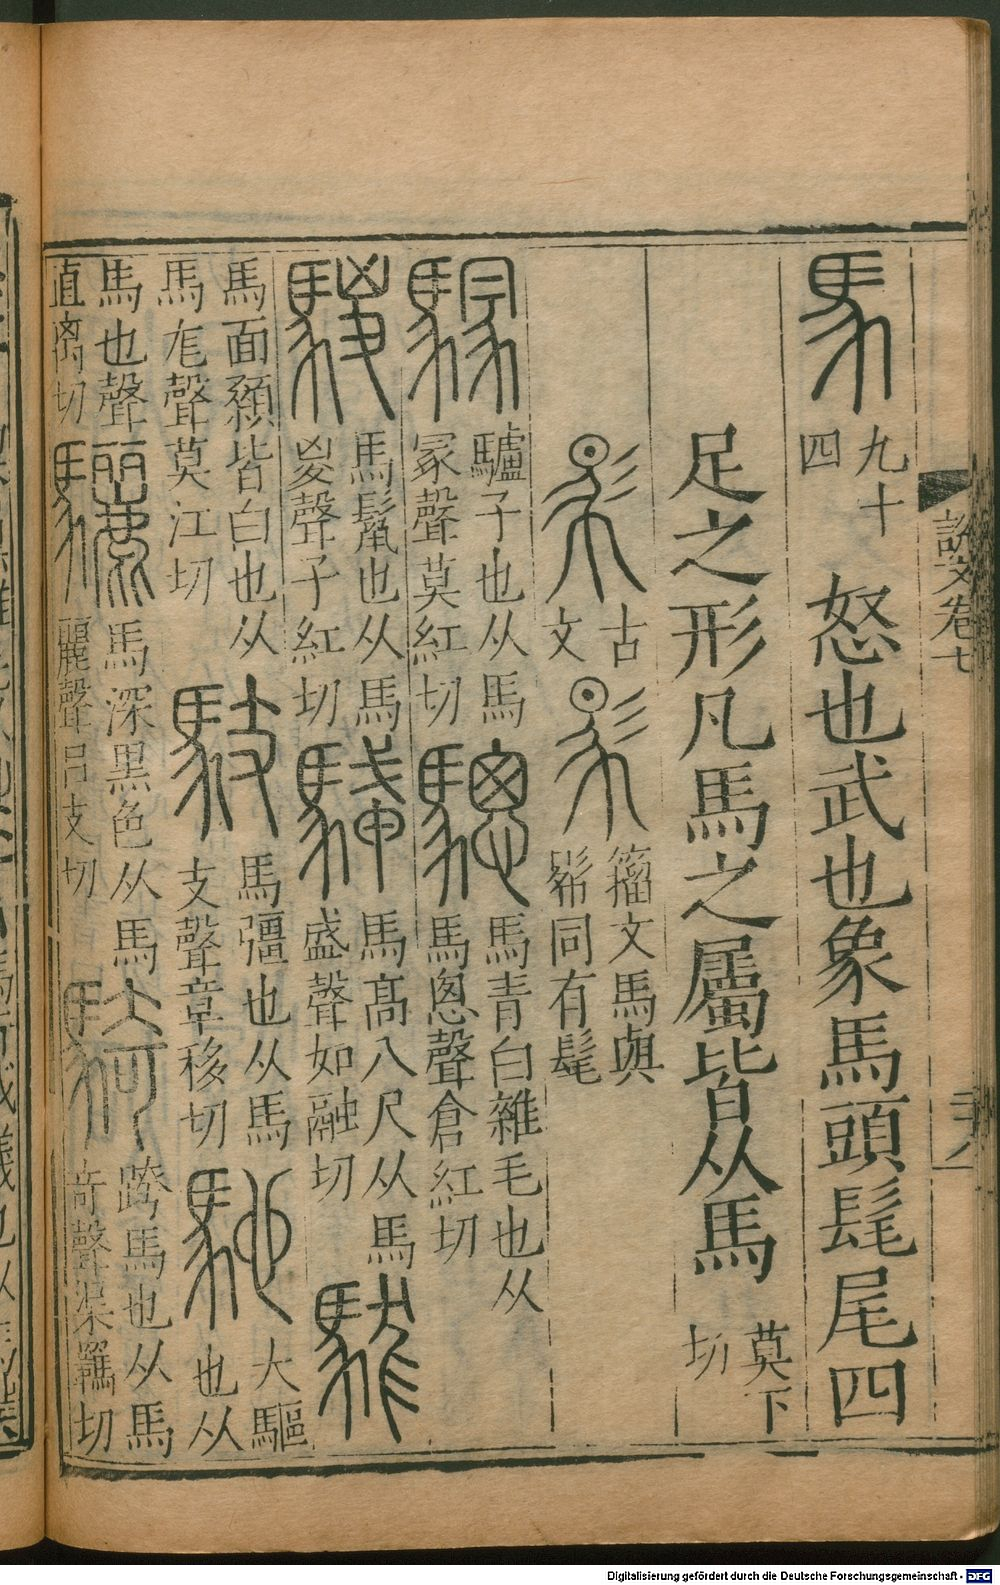 馬 九十四 怒也武也象馬頭髦尾四
足之形凡馬之屬皆从馬 莫下切
古文 籀文馬與影同有髦
驢子也从馬冡聲莫紅切 馬青白雜毛也从馬悤聲倉紅切
馬鬣也从馬㚇聲子紅切 馬高八尺从馬盛聲如融切
馬面顙皆白也从馬尨聲莫江切 馬彊也从馬支聲章移切 大驅也从
馬也聲直离切 馬深黑色从馬麗聲呂支切 跨馬也从馬奇聲渠羈切
說文卷七
Digitalisierung gefördert durch die Deutsche Forschungsgemeinschaft - DFG